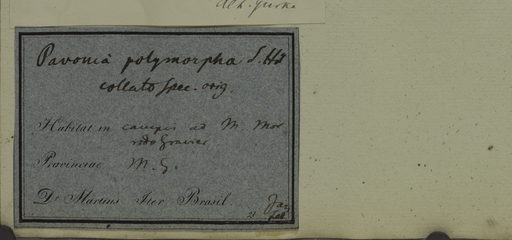 Ach. Gürke
Pavonia polymorpha S. Hil
collato spec. orig.
Habitat in campis ad M. Mor
rodo Gravier
Provinciae M. G.
Dr Martius Iter Brasil.
Jan
21 feb.